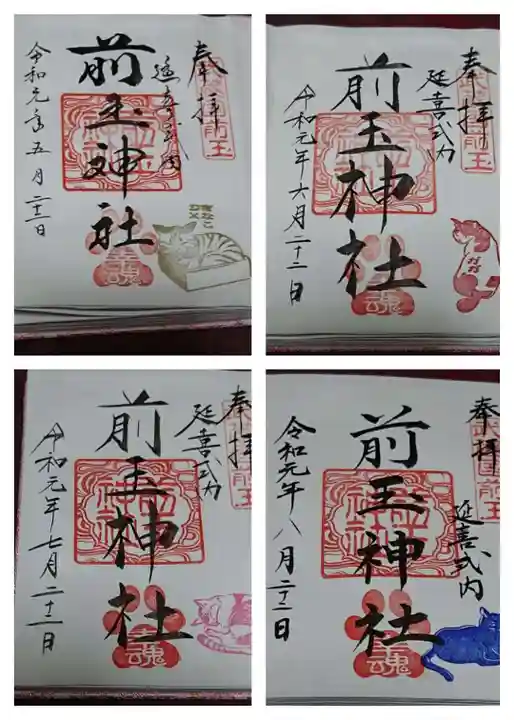 奉拝
延喜式内
前玉神社
令和元年五月二十二日
幸魂
奉拝
延喜式内
前玉神社
令和元年六月二十二日
幸魂
奉拝
延喜式内
前玉神社
令和元年七月二十二日
幸魂
奉拝
延喜式内
前玉神社
令和元年八月二十二日
幸魂